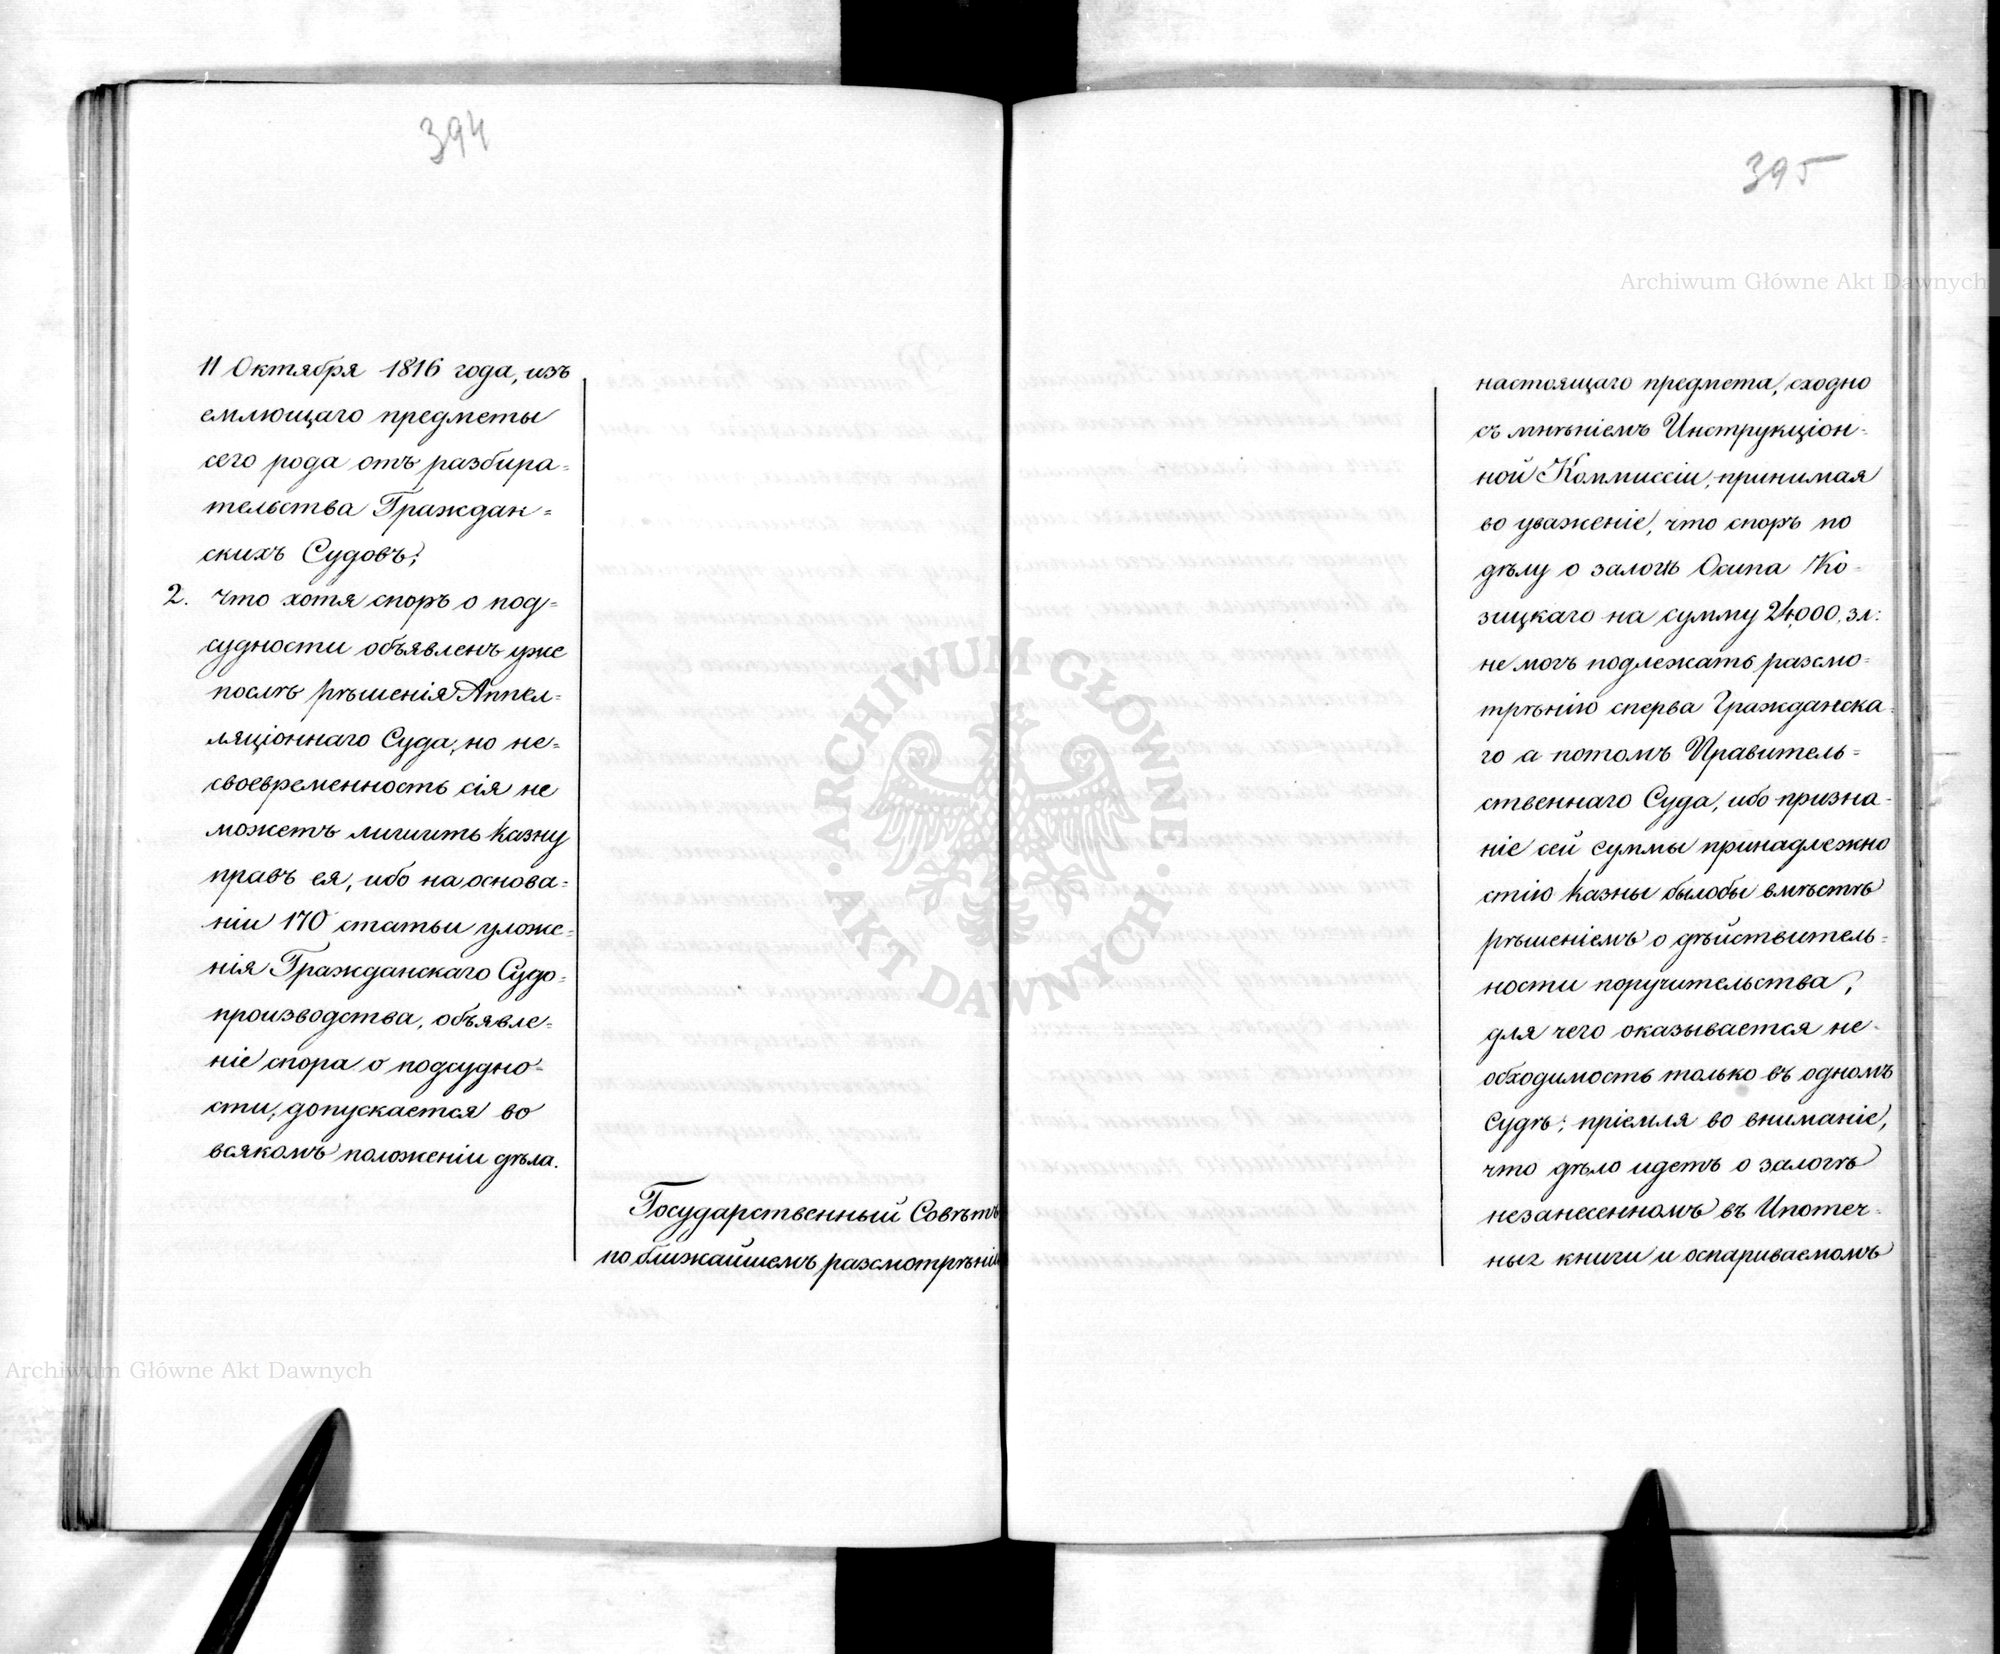 394
11 Октября 1816 года, изъ
емлющаго предметы
сего рода отъ разбира=
тельства Граждан=
скихъ Судовъ;
2. что хотя споръ о под=
судности объявленъ уже
послѣ рѣшенія Аппел=
ляціоннаго Суда, но не=
своевременность сія не
можетъ лишить Казну
правъ ея, ибо на основа=
ніи 170 статьи уложе=
нія Гражданскаго Судо=
производства, объявле=
ніе спора о подсудно=
сти, допускается во
всякомъ положеніи дѣла.
Государственный Совѣтъ
по ближайшемъ разсмотрѣніи
395
настоящаго предмета, сходно
съ мнѣніемъ Инструкціон=
ной Коммиссіи, принимая
во уваженіе, что споръ по
дѣлу о залогѣ Осипа Ко=
зицкаго на сумму 24,000 зл:
не могъ подлежать разсмо=
трѣнію сперва Гражданска=
го а потомъ Правитель=
ственнаго Суда, ибо призна=
ніе сей суммы принадлежно
стію Казны былобы вмѣстѣ
рѣшеніемъ о дѣйствитель=
ности поручительства,
для чего оказывается не=
обходимость только въ одномъ
Судѣ; пріемля во вниманіе,
что дѣло идетъ о залогѣ
незанесенномъ въ Ипотеч=
ныя книги и оспариваемомъ
Archiwum Główne Akt Dawnych
Archiwum Główne Akt Dawnych
ARCHIWUM GŁÓWNE AKT DAWNYCH